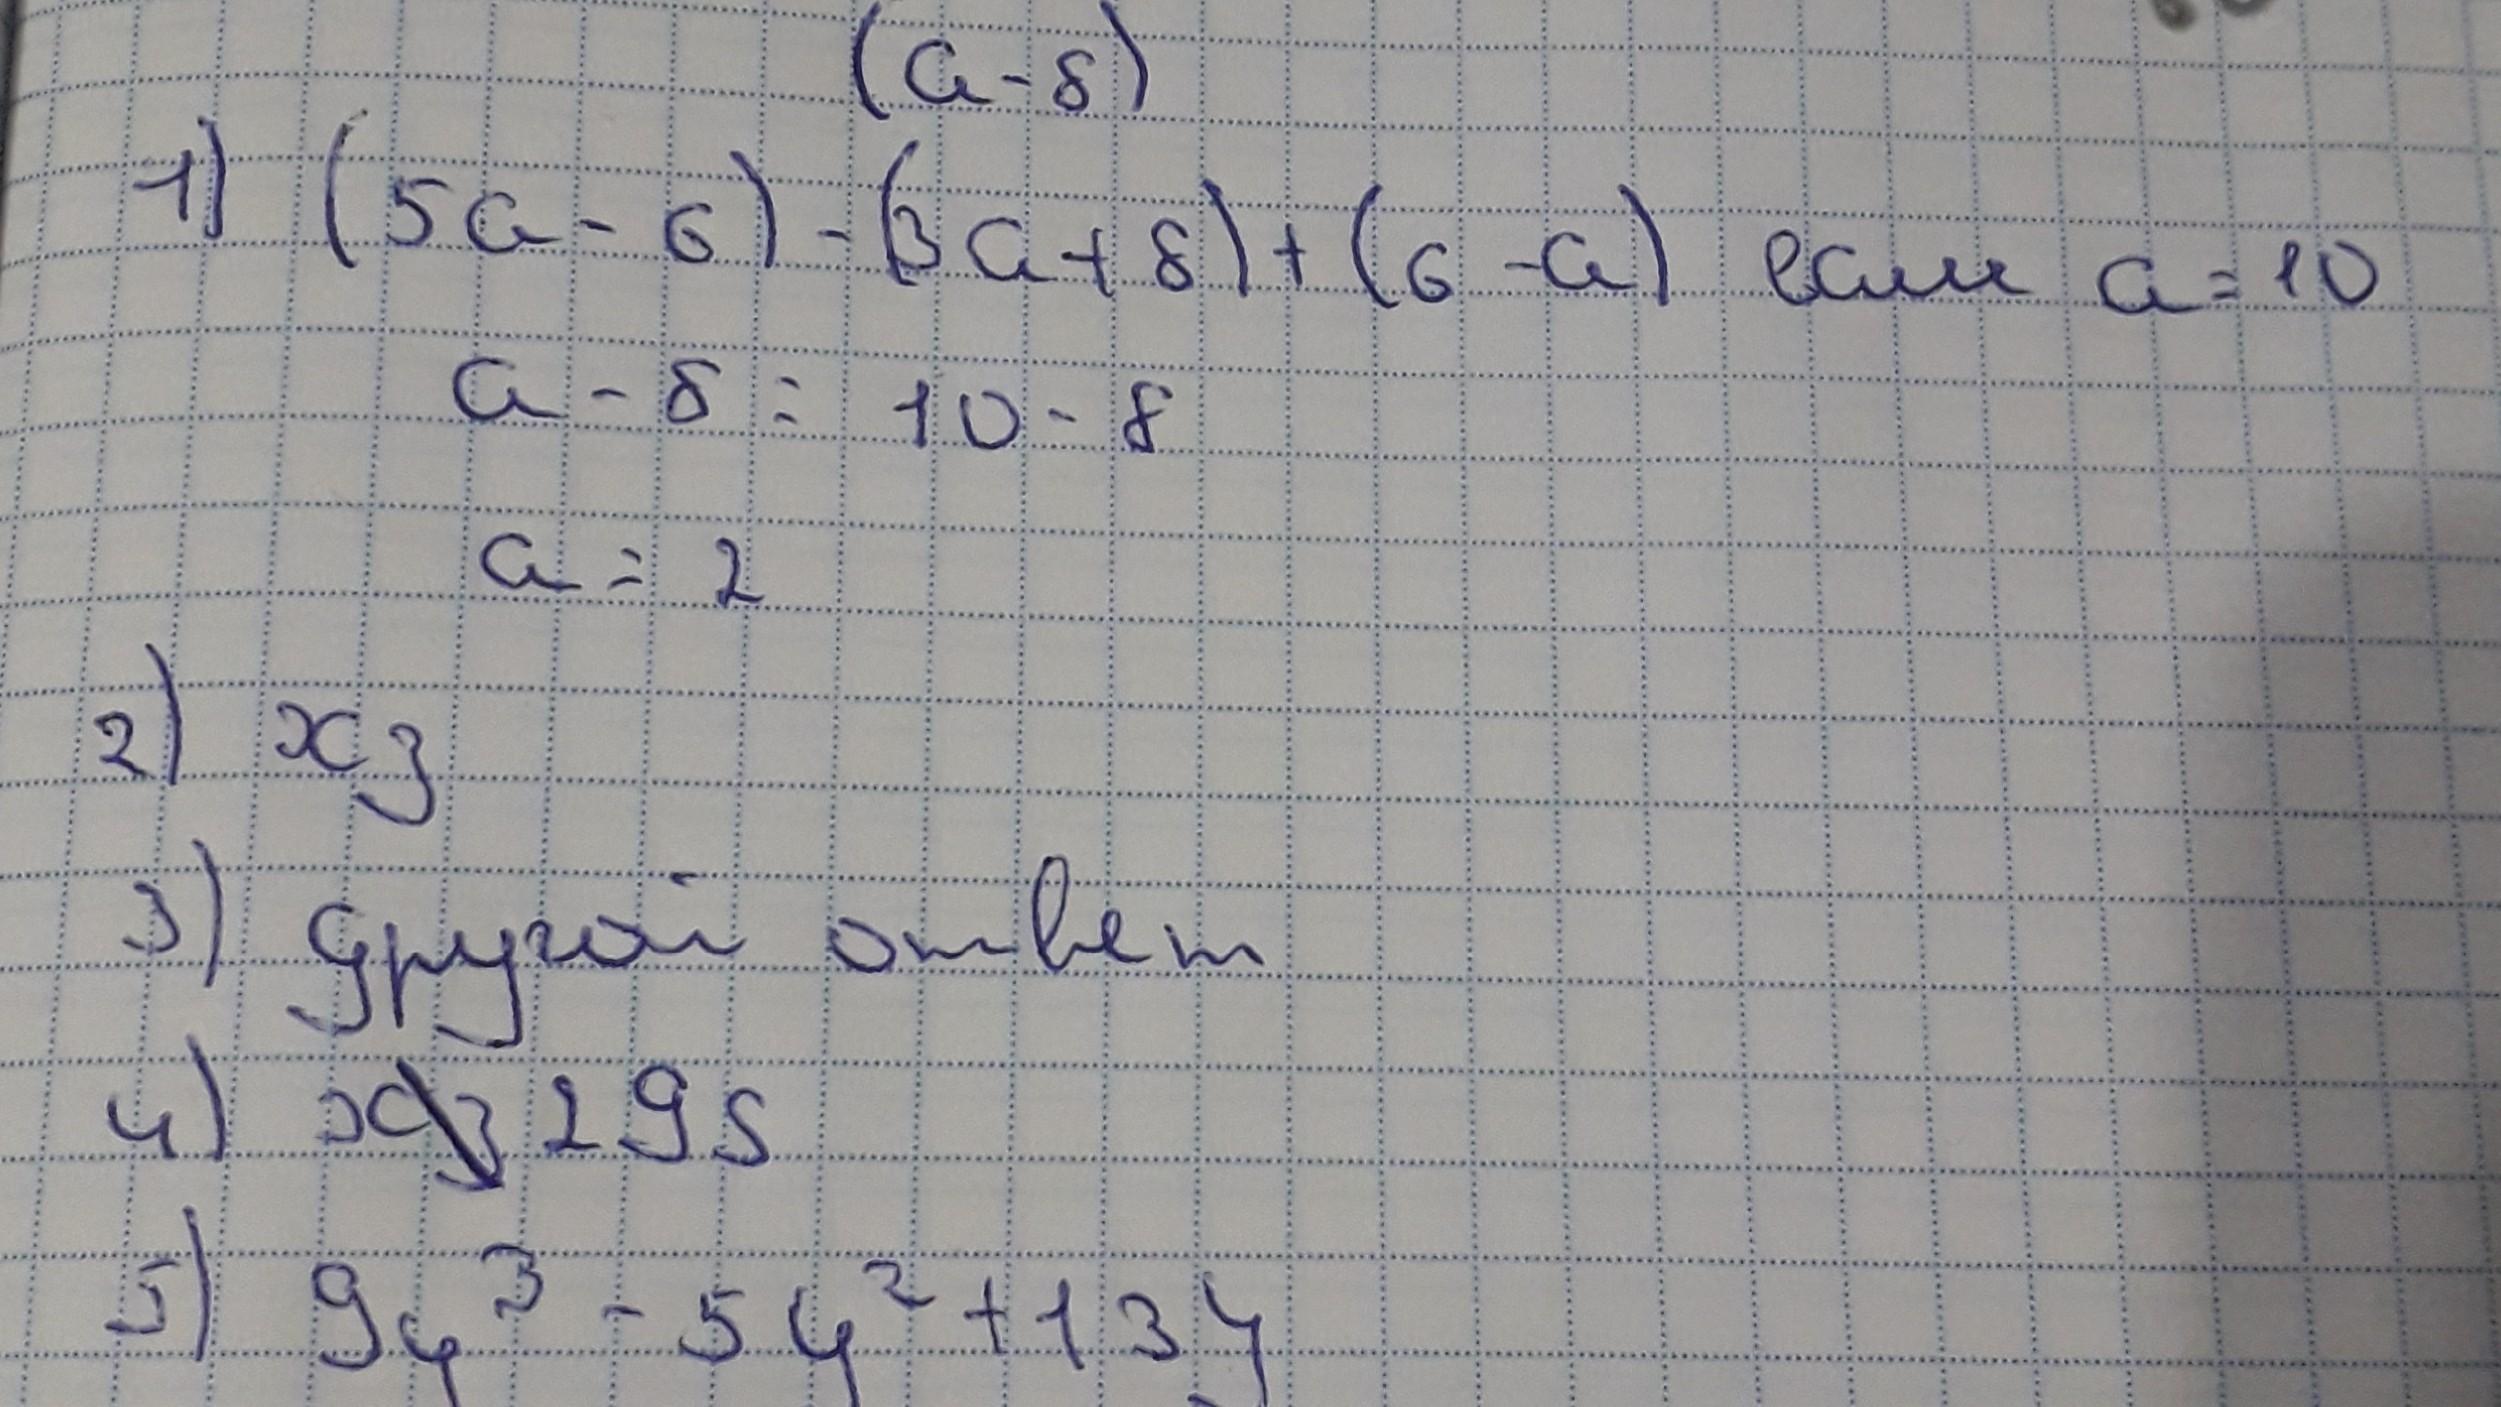 (a-8)
1) (5a-6)-(3a+8)+(6-a) если a=10
a-8=10-8
a=2
2) хз
3) другой ответ
4) хз 295
5) 9y³-5y²+13y